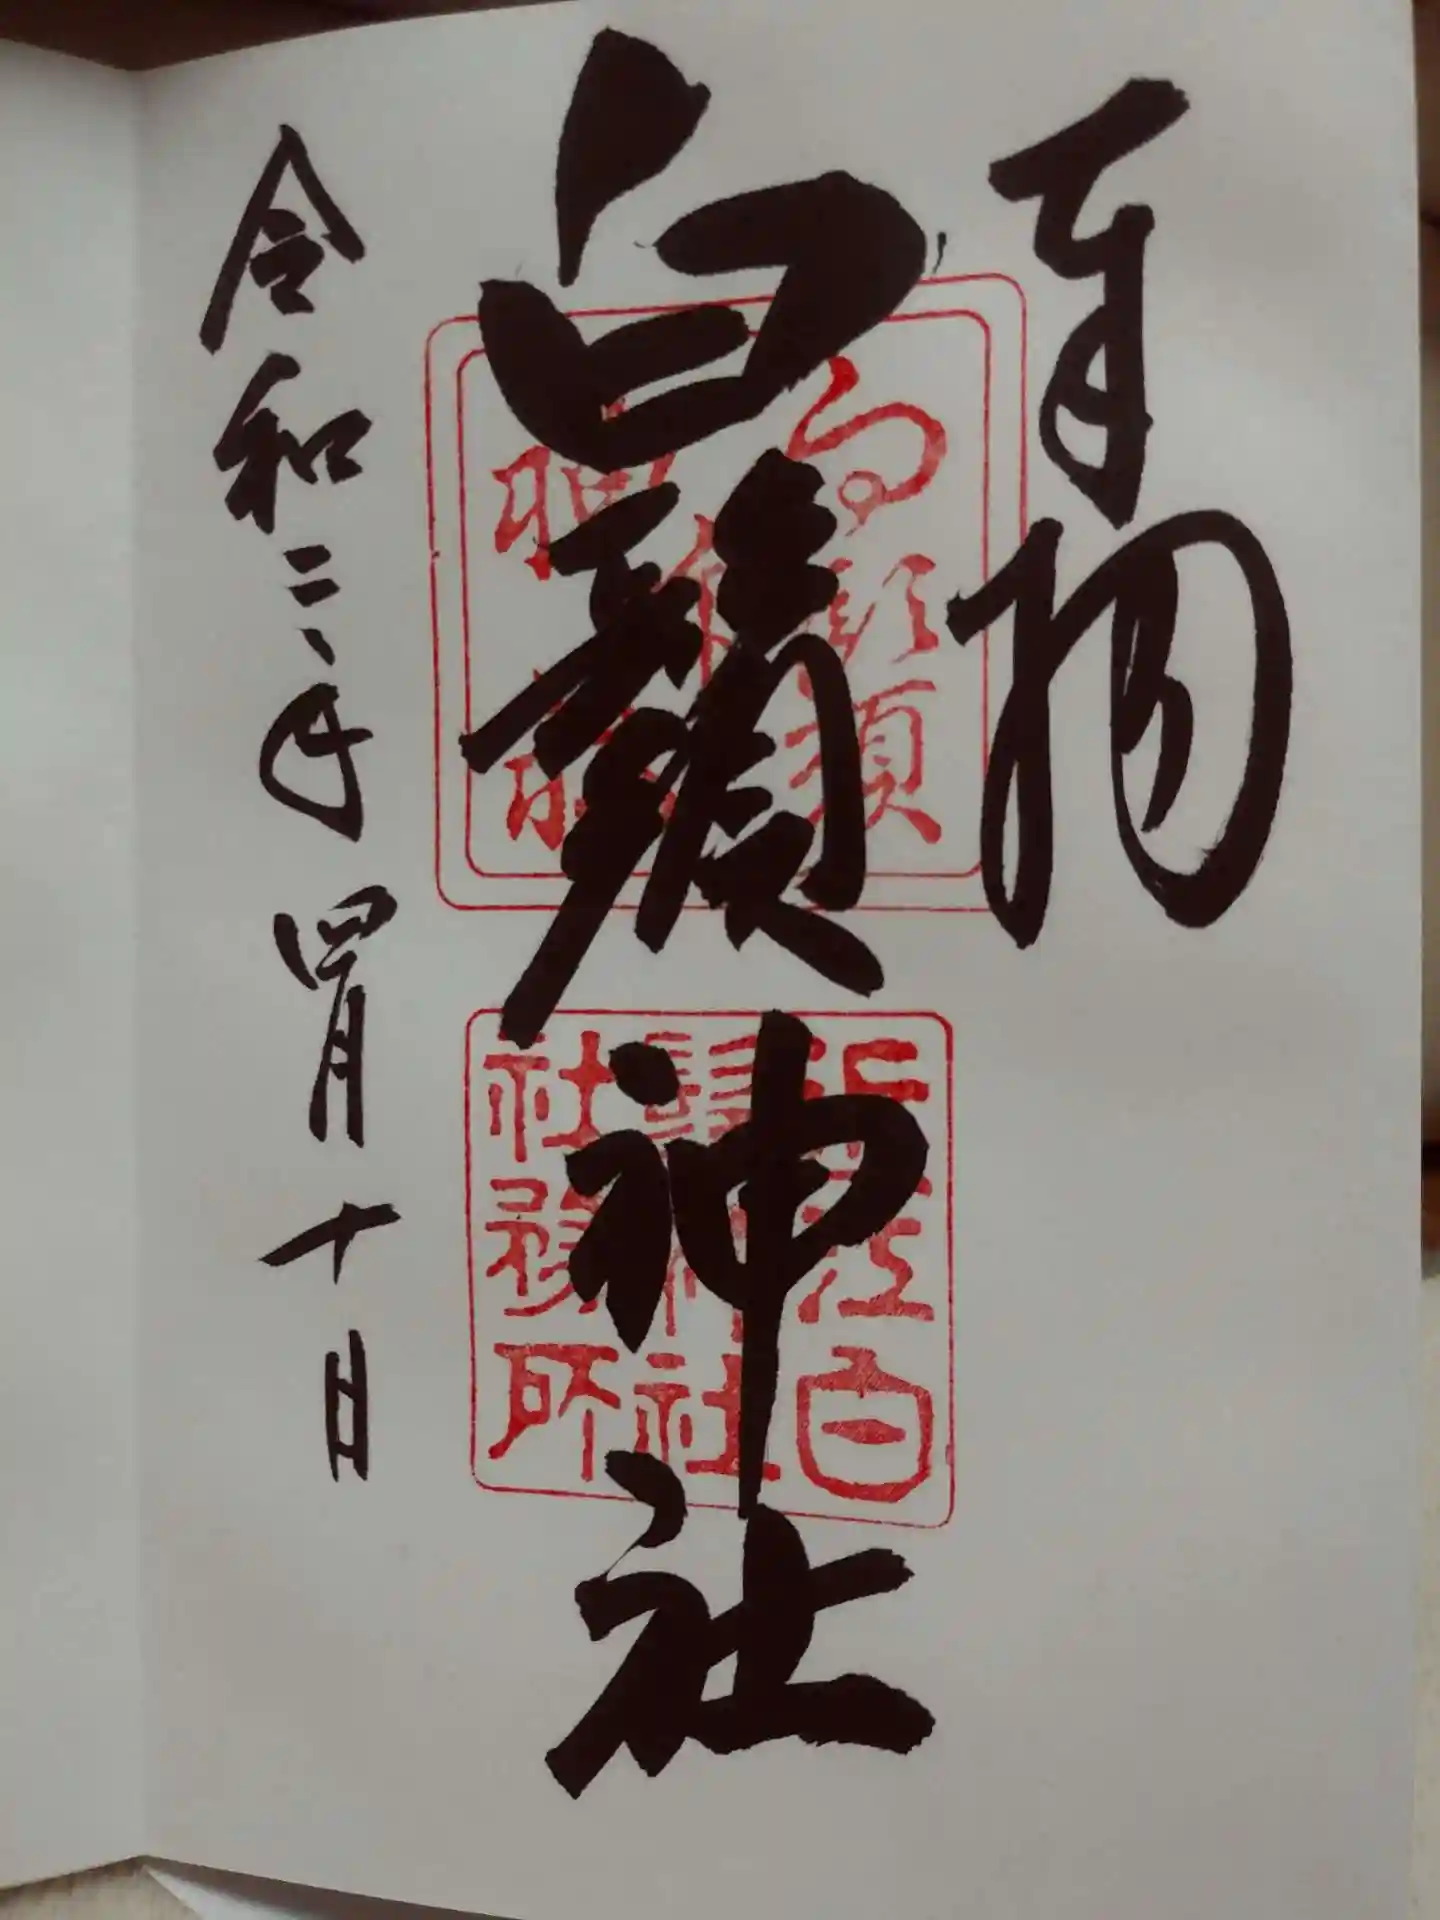 奉拝
白鬚神社
近江白
鬚神社
社務所
令和二年四月十日